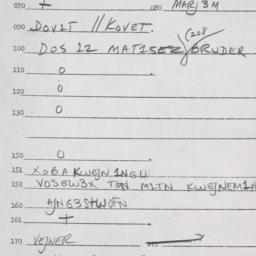 070 + 080 MARJ3M
090 DOV1T // KOVET.
(208
100 DOS 12 MAT1SEZ/BRUDER
110 0
120 0
130 0
150 0
151 XOBA KWEJN1NGU
152 VOSEW3X TEN M1TN KWEJNEM1N
160 AJNG3SHWOFN
161 +
170 VEJNER